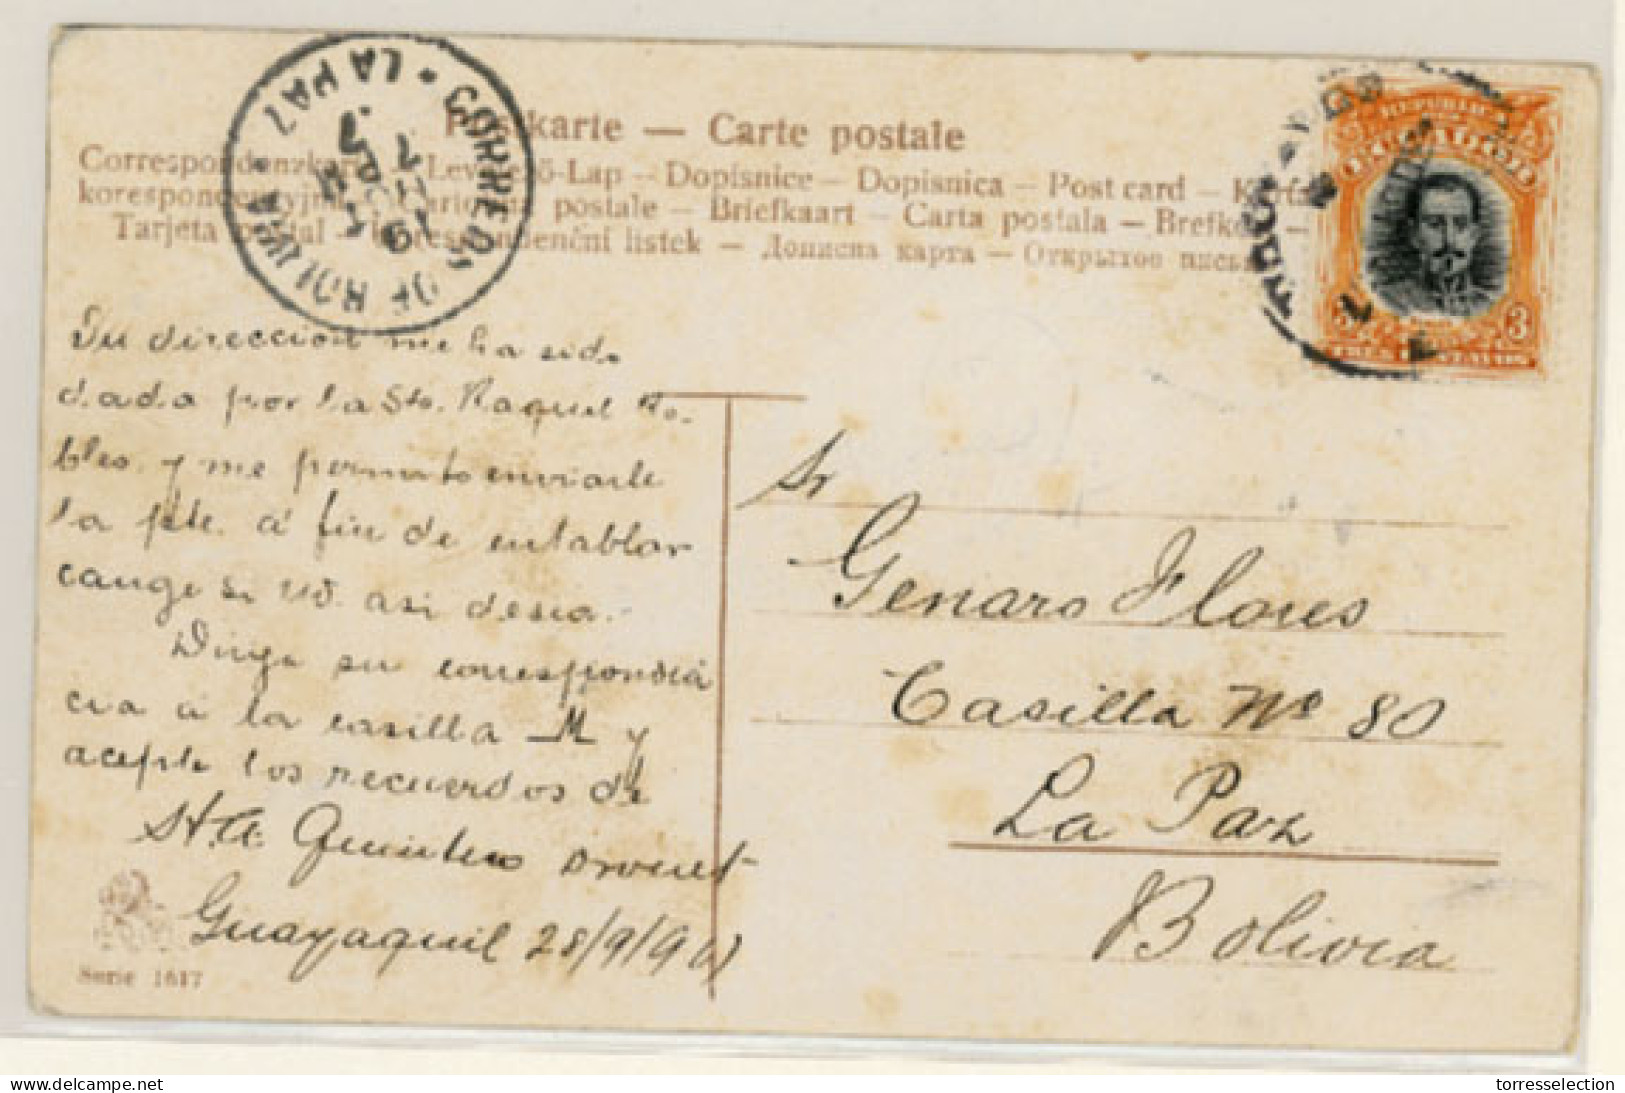 Postkarte — Carte postale
Correspondenzkarte – Levelező-Lap – Dopisnice – Dopisnica – Post card –
postale – Briefkaart – Carta postala –
Tarjeta postal – listek – Дописна карта – Открытое
CORREOS DE BOLIVIA * LA PAZ
REPUBLICA
ECUADOR
3
TRES CENTAVOS
Su direccion me ha sido
dada por la Sta. Raquel Ro-
bles. y me permito enviarle
la pte. á fin de entablar
cange si Ud. asi desea.
Dirija su correspondia
cia á la casilla M y
acepte los recuerdos de
St. A. Quintero Drouet
Guayaquil 28/9/907
Serie 1617
Sr
Genaro Flores
Casilla Nº 80
La Paz
Bolivia
delcampe.net
torresselection